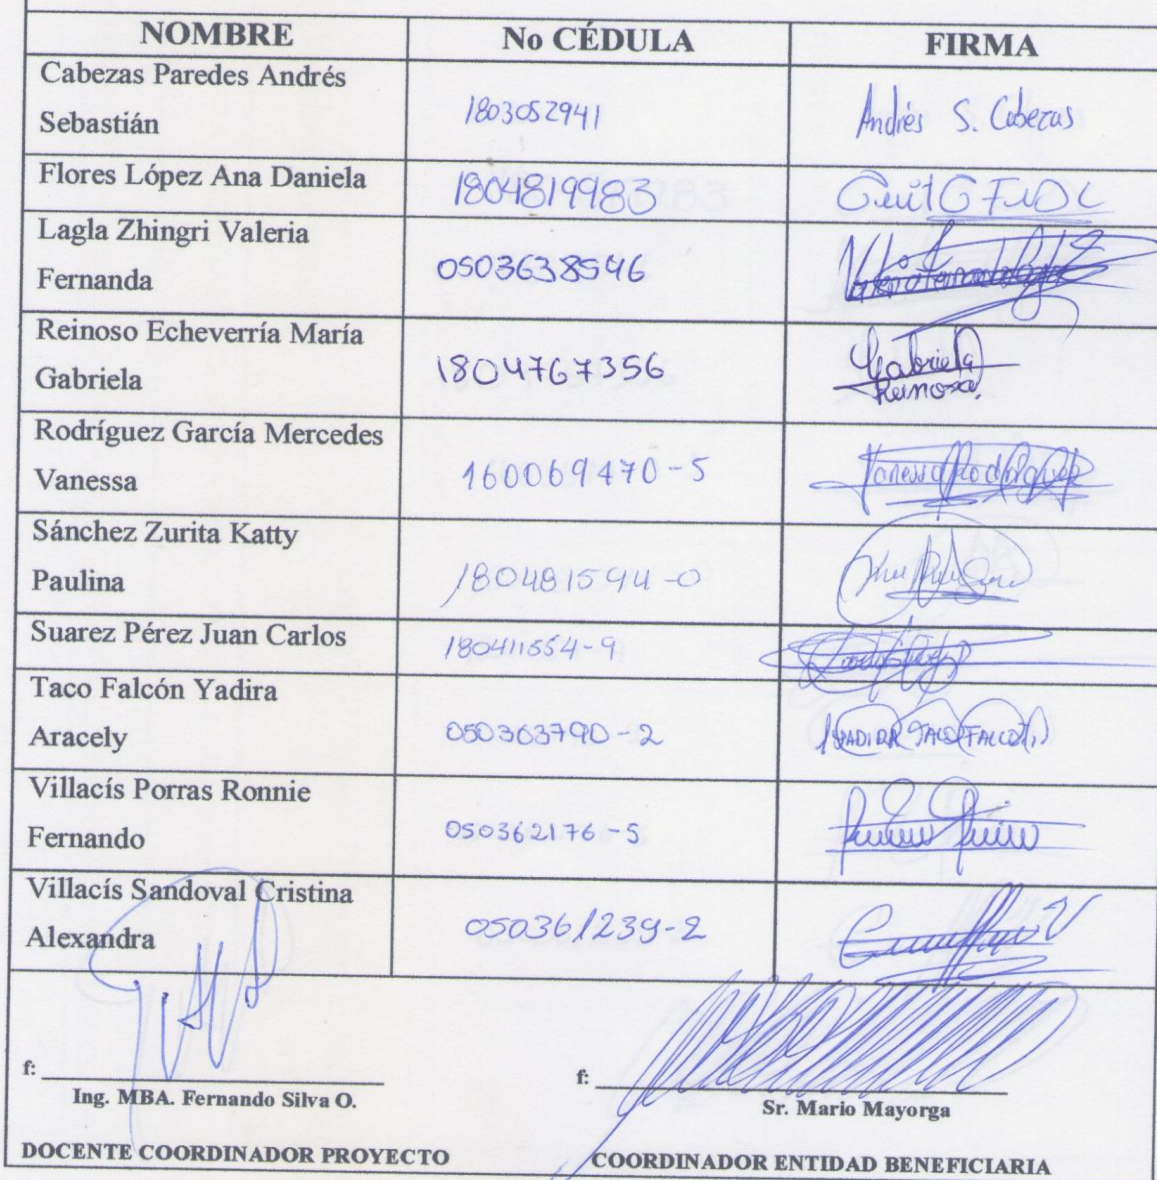 NOMBRE No CÉDULA FIRMA
Cabezas Paredes Andrés
Sebastián 1803052941 Andrés S. Cabezas
Flores López Ana Daniela 1804819983
Lagla Zhingri Valeria
Fernanda 0503638546
Reinoso Echeverría María
Gabriela 1804767356 Gabriela
Reinoso
Rodríguez García Mercedes
Vanessa 160069470-5 Vanessa Rodríguez
Sánchez Zurita Katty
Paulina 180481594-0
Suarez Pérez Juan Carlos 180411554-9
Taco Falcón Yadira
Aracely 050363790-2 YADIRA TACO FALCON
Villacís Porras Ronnie
Fernando 050362176-5
Villacís Sandoval Cristina
Alexandra 050361239-2
f: f:
Ing. MBA. Fernando Silva O. Sr. Mario Mayorga
DOCENTE COORDINADOR PROYECTO COORDINADOR ENTIDAD BENEFICIARIA